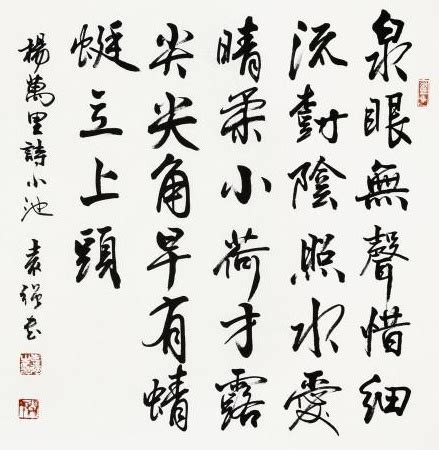 泉眼無聲惜細
流樹陰照水愛
晴柔小荷才露
尖尖角早有蜻
蜓立上頭
楊萬里詩小池 袁强书